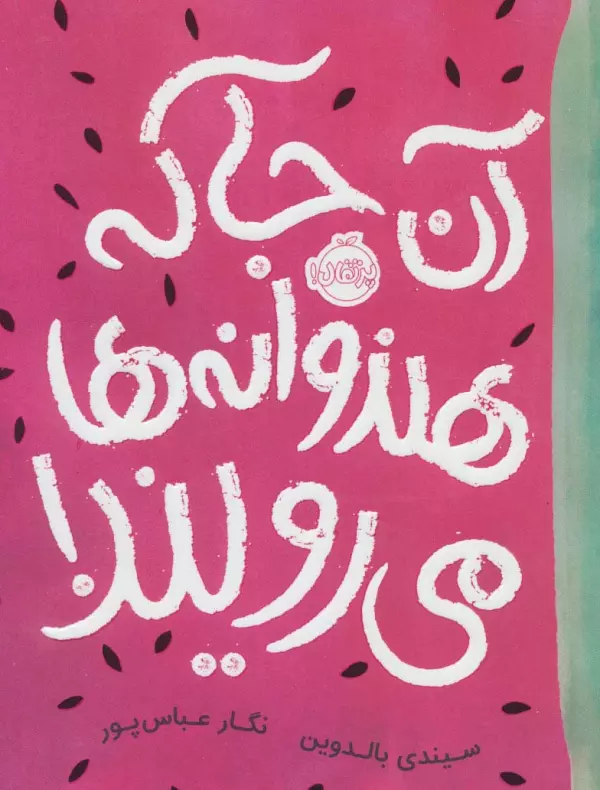 آن جا که
پرتقال!
هندوانه‌ها
می‌رویند!
سیندی بالدوین نگار عباس‌پور